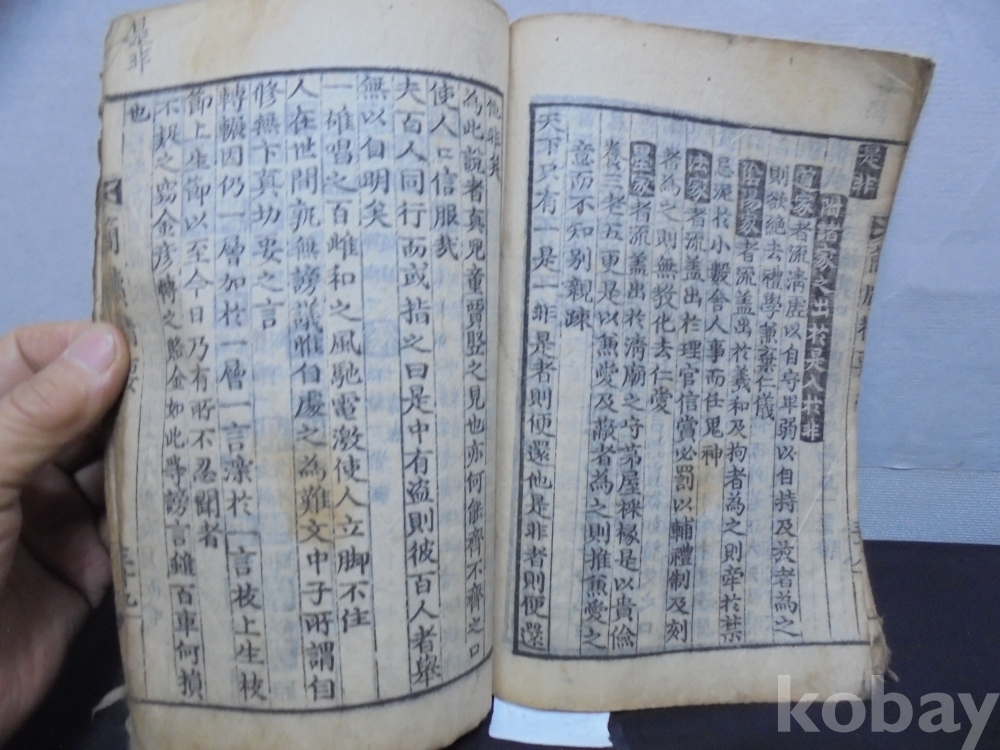 是非
附諸家之出於是入於非
道家者流淸虛以自守卑弱以自持及放者為之
則欲絶去禮學兼棄仁義
陰陽家者流盖出於羲和及拘者為之則牽於禁
忌泥於小數舍人事而任鬼神
法家者流盖出於理官信賞必罰以輔禮制及刻
者為之則無敎化去仁愛
墨家者流盖出於淸廟之守茅屋採椽是以貴儉
養三老五更是以兼愛及蔽者為之則推兼愛之
意而不知別親踈
天下只有一是一非是者則便還他是非者則便還
他非矣
為此說者真兒童賈竪之見也亦何能齊不齊之口
使人口信服哉
夫百人同行而或指之曰是中有盗則彼百人者擧
無以自明矣
一雄唱之百雌和之風馳電激使人立脚不住
人在世間孰無謗議惟自處之為難文中子所謂自
修無卞真切要之言
轉輾因仍一層加於一層一言深於一言枝上生枝
節上生節以至今日乃有所不忍聞者
不疑之竊金彦博之賂金如此等謗言雖百車何損
也
三十九
是非
kobay